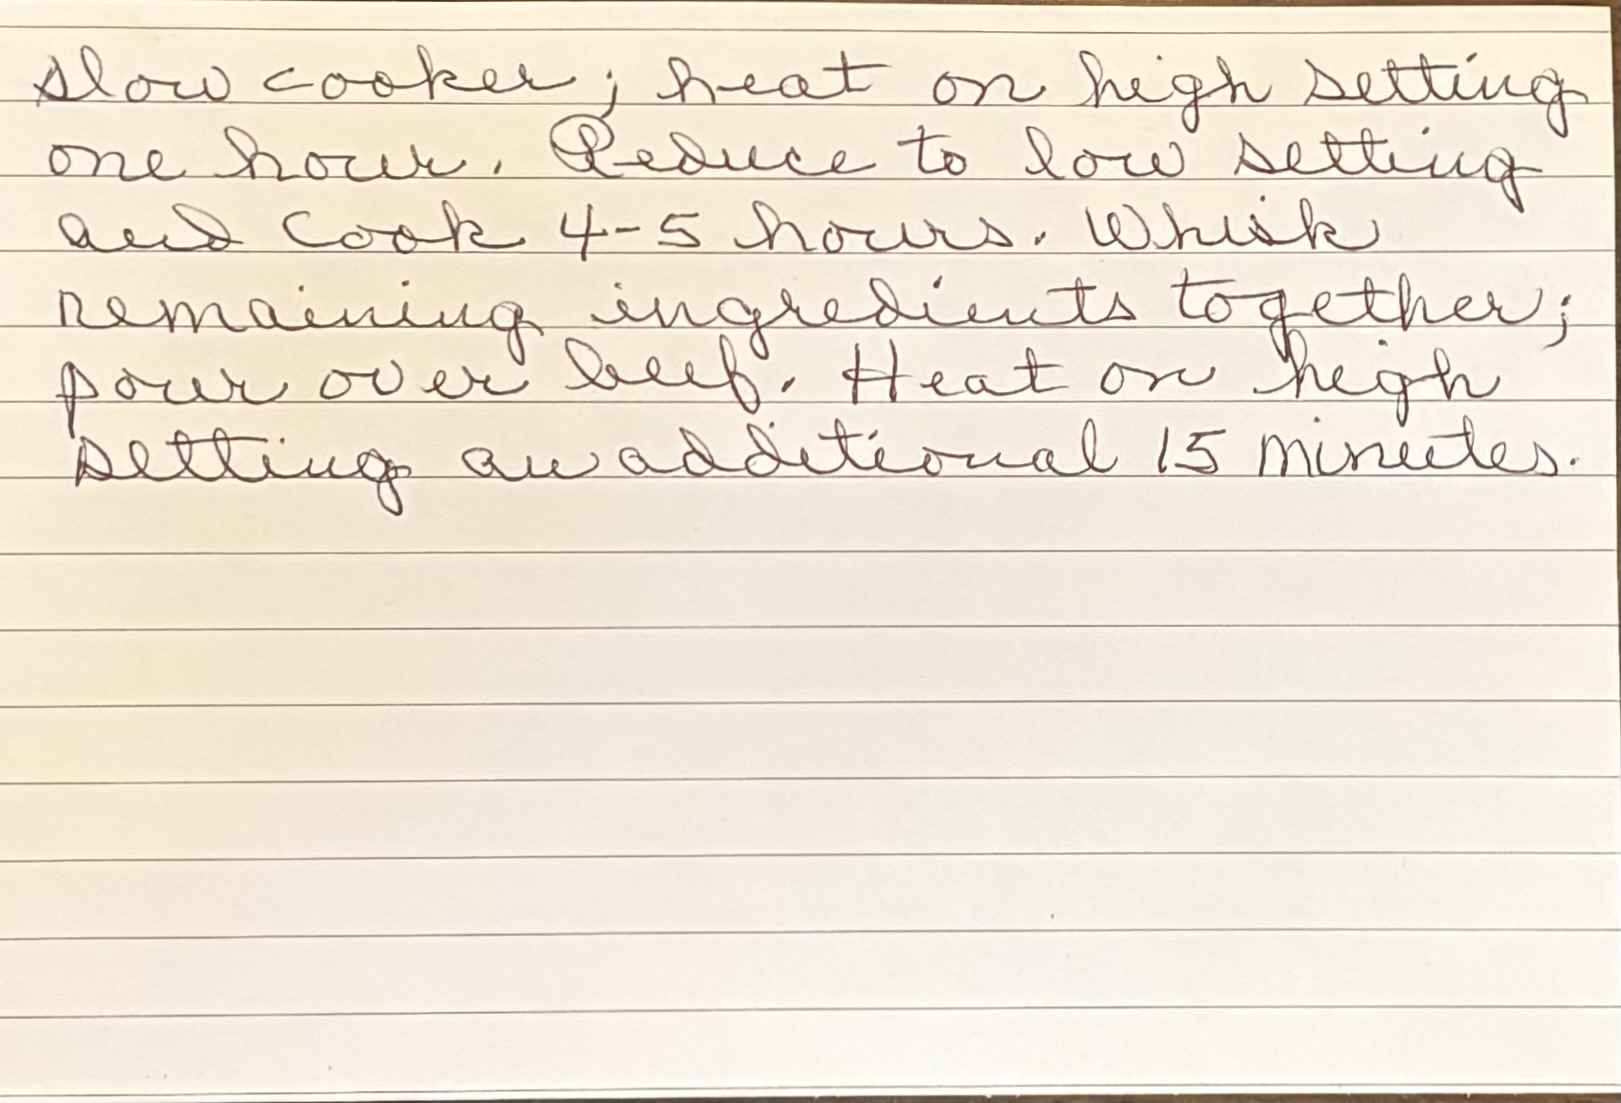 slow cooker; heat on high setting
one hour. Reduce to low setting
and cook 4-5 hours. Whisk
remaining ingredients together;
pour over beef. Heat on high
setting an additional 15 minutes.